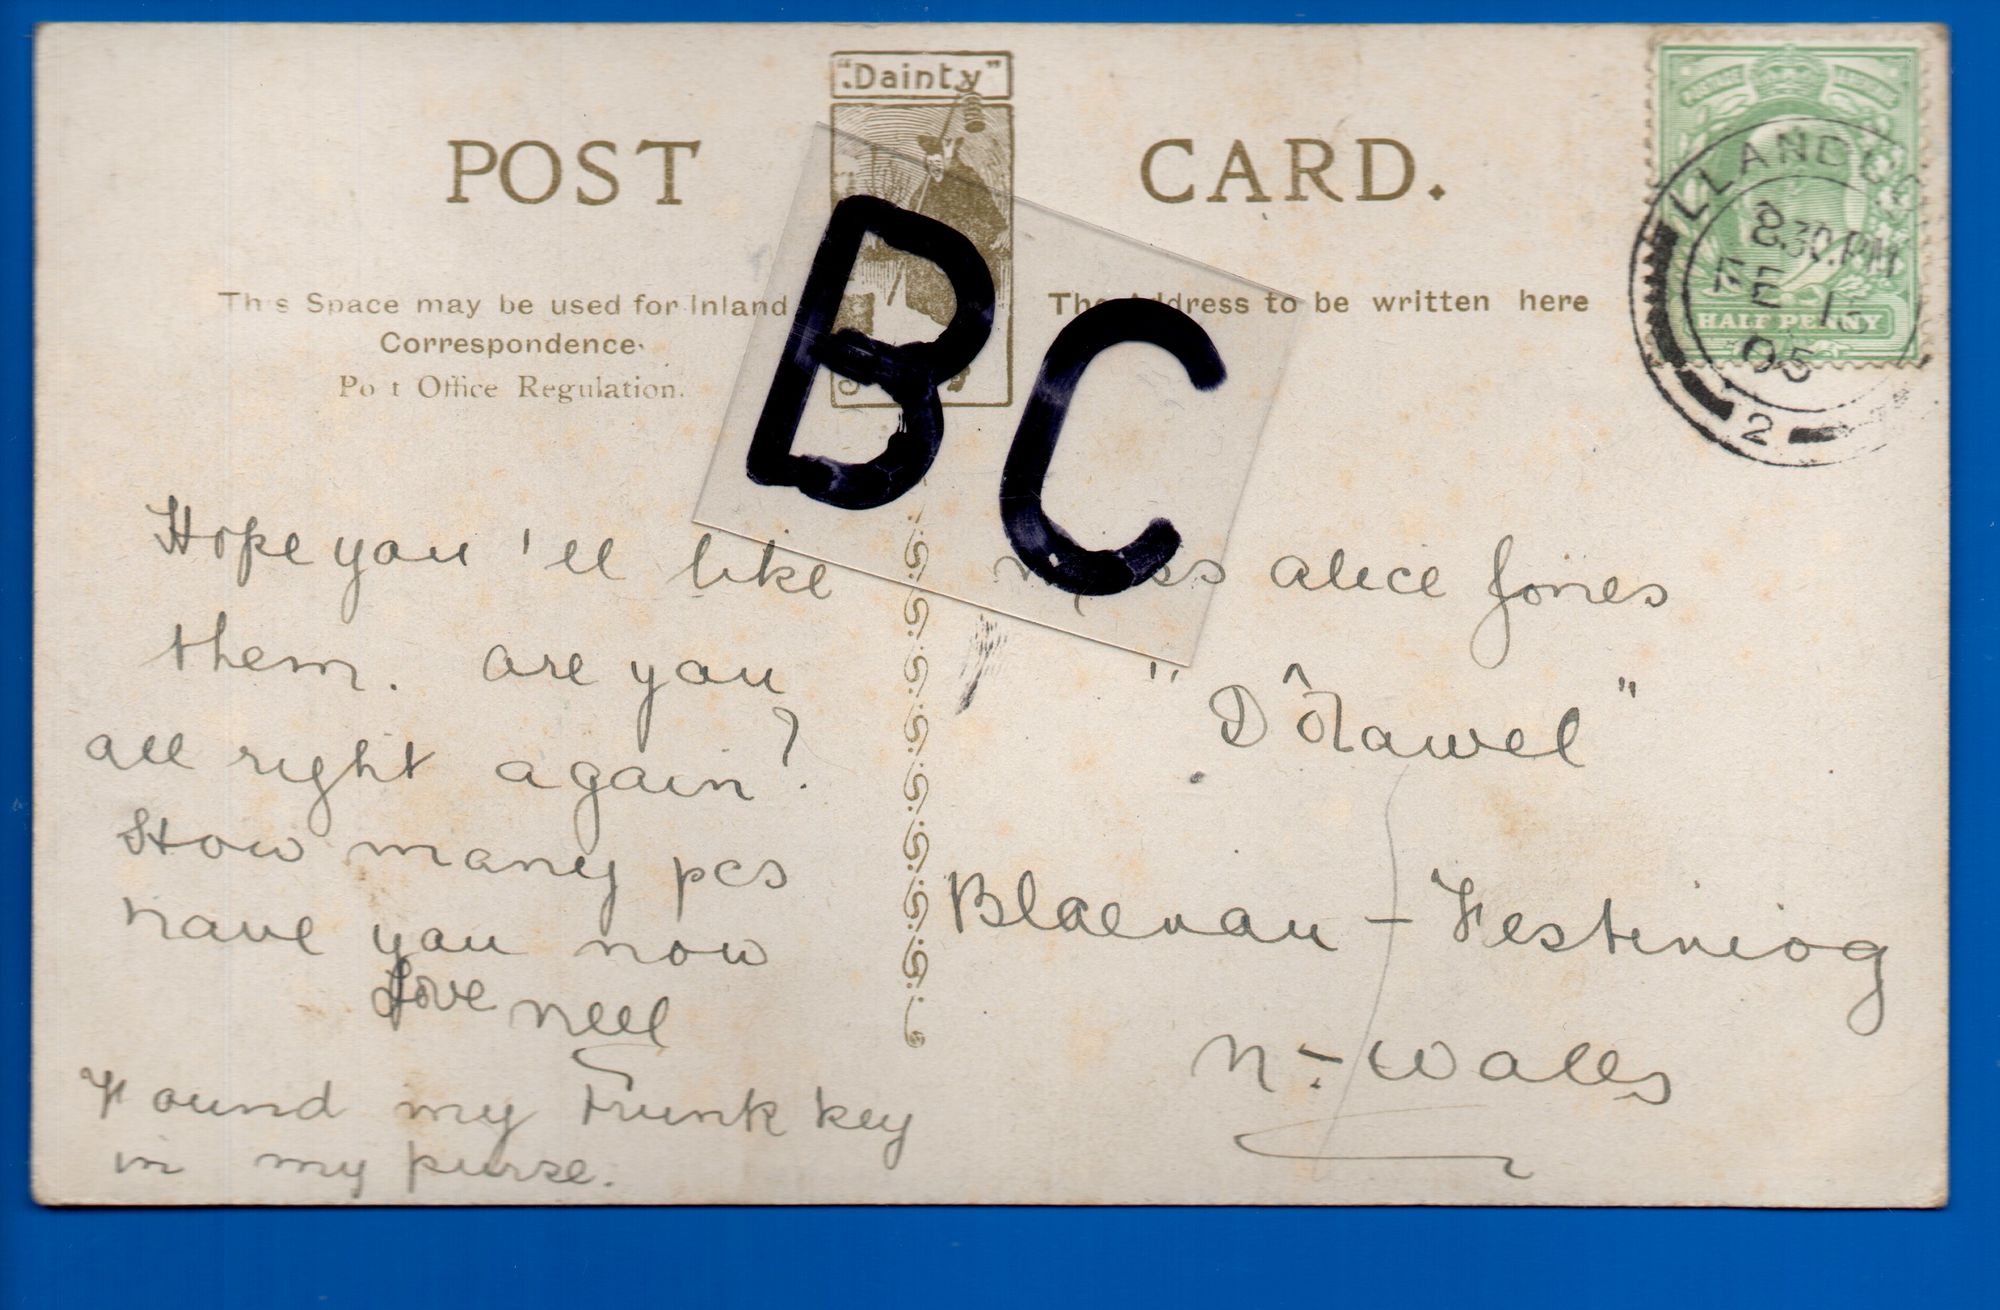 "Dainty"
POST CARD.
This Space may be used for Inland
Correspondence.
Post Office Regulation.
The Address to be written here
BC
LLANDO
8.30.PM
FE 13
05
2
HALF PENNY
Hope you'll like
them. are you
all right again?
How many pcs
have you now
Love nell
Found my trunk key
in my purse.
miss alice Jones
"Dôlawel"
Blaenau - Festiniog
n. - Wales